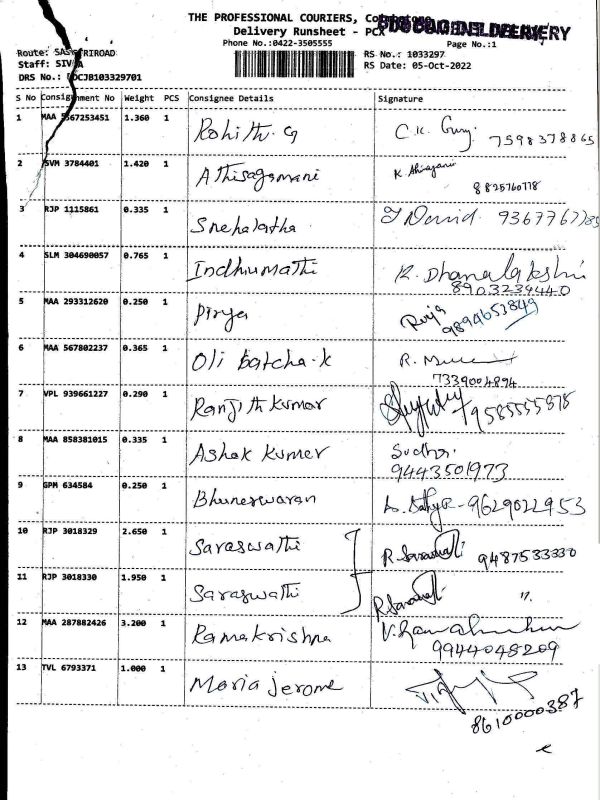 THE PROFESSIONAL COURIERS,
Delivery Runsheet - PCX
Phone No.:0422-3505555
Page No.:1
Route: SAS RIROAD
RS No.: 1033297
Staff: SIV A
RS Date: 05-Oct-2022
DRS No.: DCJB103329701
S No Consignment No Weight PCS Consignee Details Signature
1 MAA 567253451 1.360 1 Rohith. G 7598378865
2 SVM 3784401 1.420 1 Athisagamani K.
8825760778
3 RJP 1115861 0.335 1 Snehalatha J David
4 SLM 304690057 0.765 1 Indhumathi K. Dhanalakshmi
8903239440
5 MAA 293312620 0.250 1 Pirya
9894653849
6 MAA 567802237 0.365 1 Oli batcha.k R.
7339004894
7 VPL 939661227 0.290 1 Ranjith Kumar
8 MAA 858381015 0.335 1 Ashok Kumer Sudha.
9443501973
9 GPM 634584 0.250 1 Bhuneswaran 9629022953
10 RJP 3018329 2.650 1 Saraswathi 9487533330
11 RJP 3018330 1.950 1 Saraswathi "
12 MAA 287882426 3.200 1 Ramakrishna
9944048209
13 TVL 6793371 1.000 1 Maria jerome
8610000387